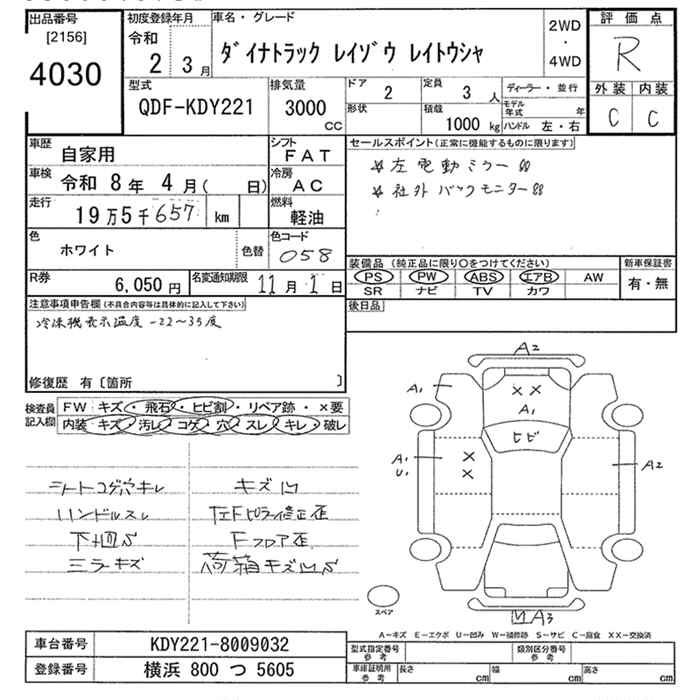 出品番号
[2156]
4030
初度登録年月
令和
2 3月
車名・グレード
ダイナトラック レイゾウ レイトウシャ
2WD
・
4WD
評価点
R
外装 内装
C C
型式
QDF-KDY221
排気量
3000
CC
ドア
2
定員
3 人
ディーラー・並行
形状
積載
1000 kg
モデル年式 年
ハンドル 左・右
車歴
自家用
シフト
FAT
車検
令和 8年 4月( 日)
冷房
AC
走行
19万5千657 km
燃料
軽油
色
ホワイト
色替
色コード
058
R券
6,050円
名変通知期限
11月 1日
セールスポイント(正常に機能するものに限ります)
☆左電動ミラー
☆社外バックモニター
装備品(純正品に限り○をつけてください)
PS PW ABS エアB AW
SR ナビ TV カワ
新車保証書
有・無
後日品
注意事項申告欄(不具合内容等は具体的に記入して下さい)
冷凍機表示温度 -22~35度
修復歴 有〔箇所 〕
検査員
記入欄
FW キズ・飛石・ヒビ割・リペア跡・×要
内装 キズ・汚レ・コゲ・穴・スレ・キレ・破レ
シートコゲ穴キレ
ハンドルスレ
下廻S
ミラーキズ
キズ凹
左Fピラー修正歪
Fフロア歪
荷箱キズ凹S
A2
A1
× ×
A1
ヒビ
A1
U1
×
×
A2
凹A3
スペア
A-キズ E-エクボ U-凹み W-補修跡 S-サビ C-腐食 XX-交換済
車台番号
KDY221-8009032
登録番号
横浜 800 つ 5605
型式指定番号
参考
類別区分番号
参考
車庫証明用
参考
長さ cm
幅 cm
高さ cm